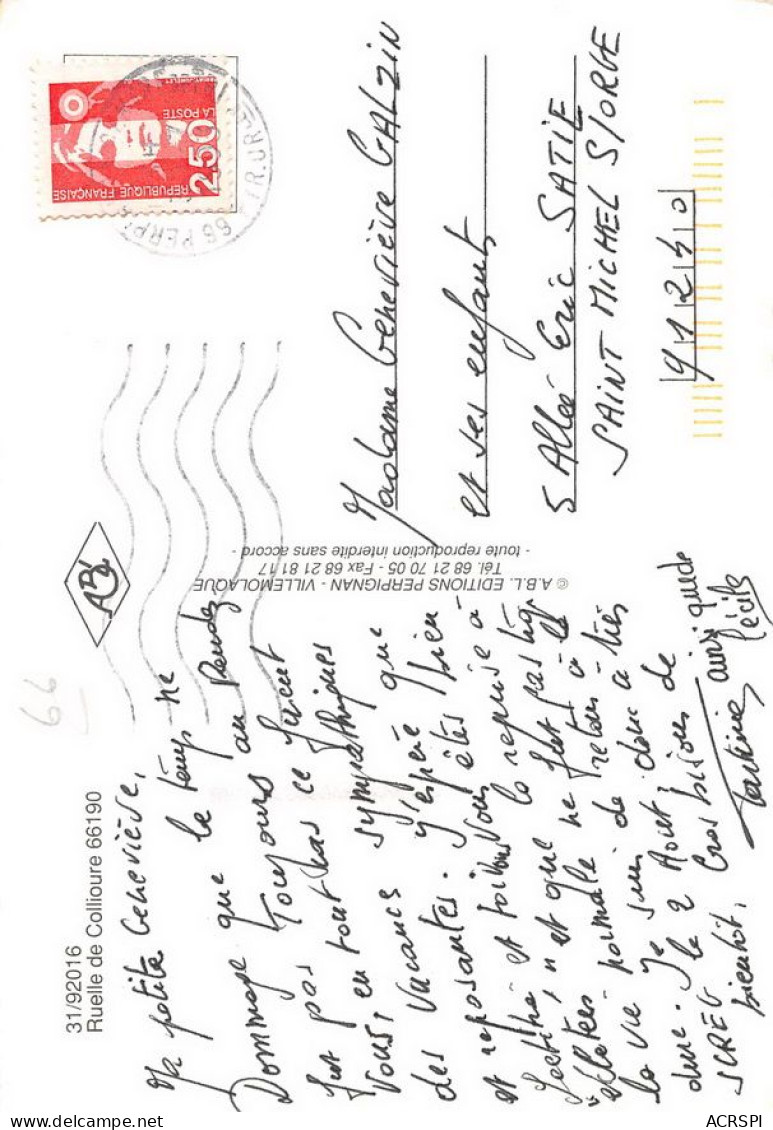 31/92016
Ruelle de Collioure 66190
Ma petite Geneviève,
Dommage que le temps ne
fut pas toujours au rendez
vous, en tout cas ce furent
des vacances sympathiques
et reposantes. J'espère que
vous êtes bien
et toi la reprise à
n'est que ne fut pas trop
la vie normale retour à la
dure. Je suis de donc à très
SCREG le 2 Août,
bientôt. Gros bisous de
Martine
ABL
© A.B.L. EDITIONS PERPIGNAN - VILLEMOLAQUE
Tél. 68 21 70 05 - Fax 68 21 81 17
- toute reproduction interdite sans accord -
REPUBLIQUE FRANÇAISE
2,50
LA POSTE
66 PERP
Madame Geneviève GALZIN
et ses enfants
5 Allée Eric SATIE
SAINT MICHEL S/ORGE
91240
66
ACRSPI